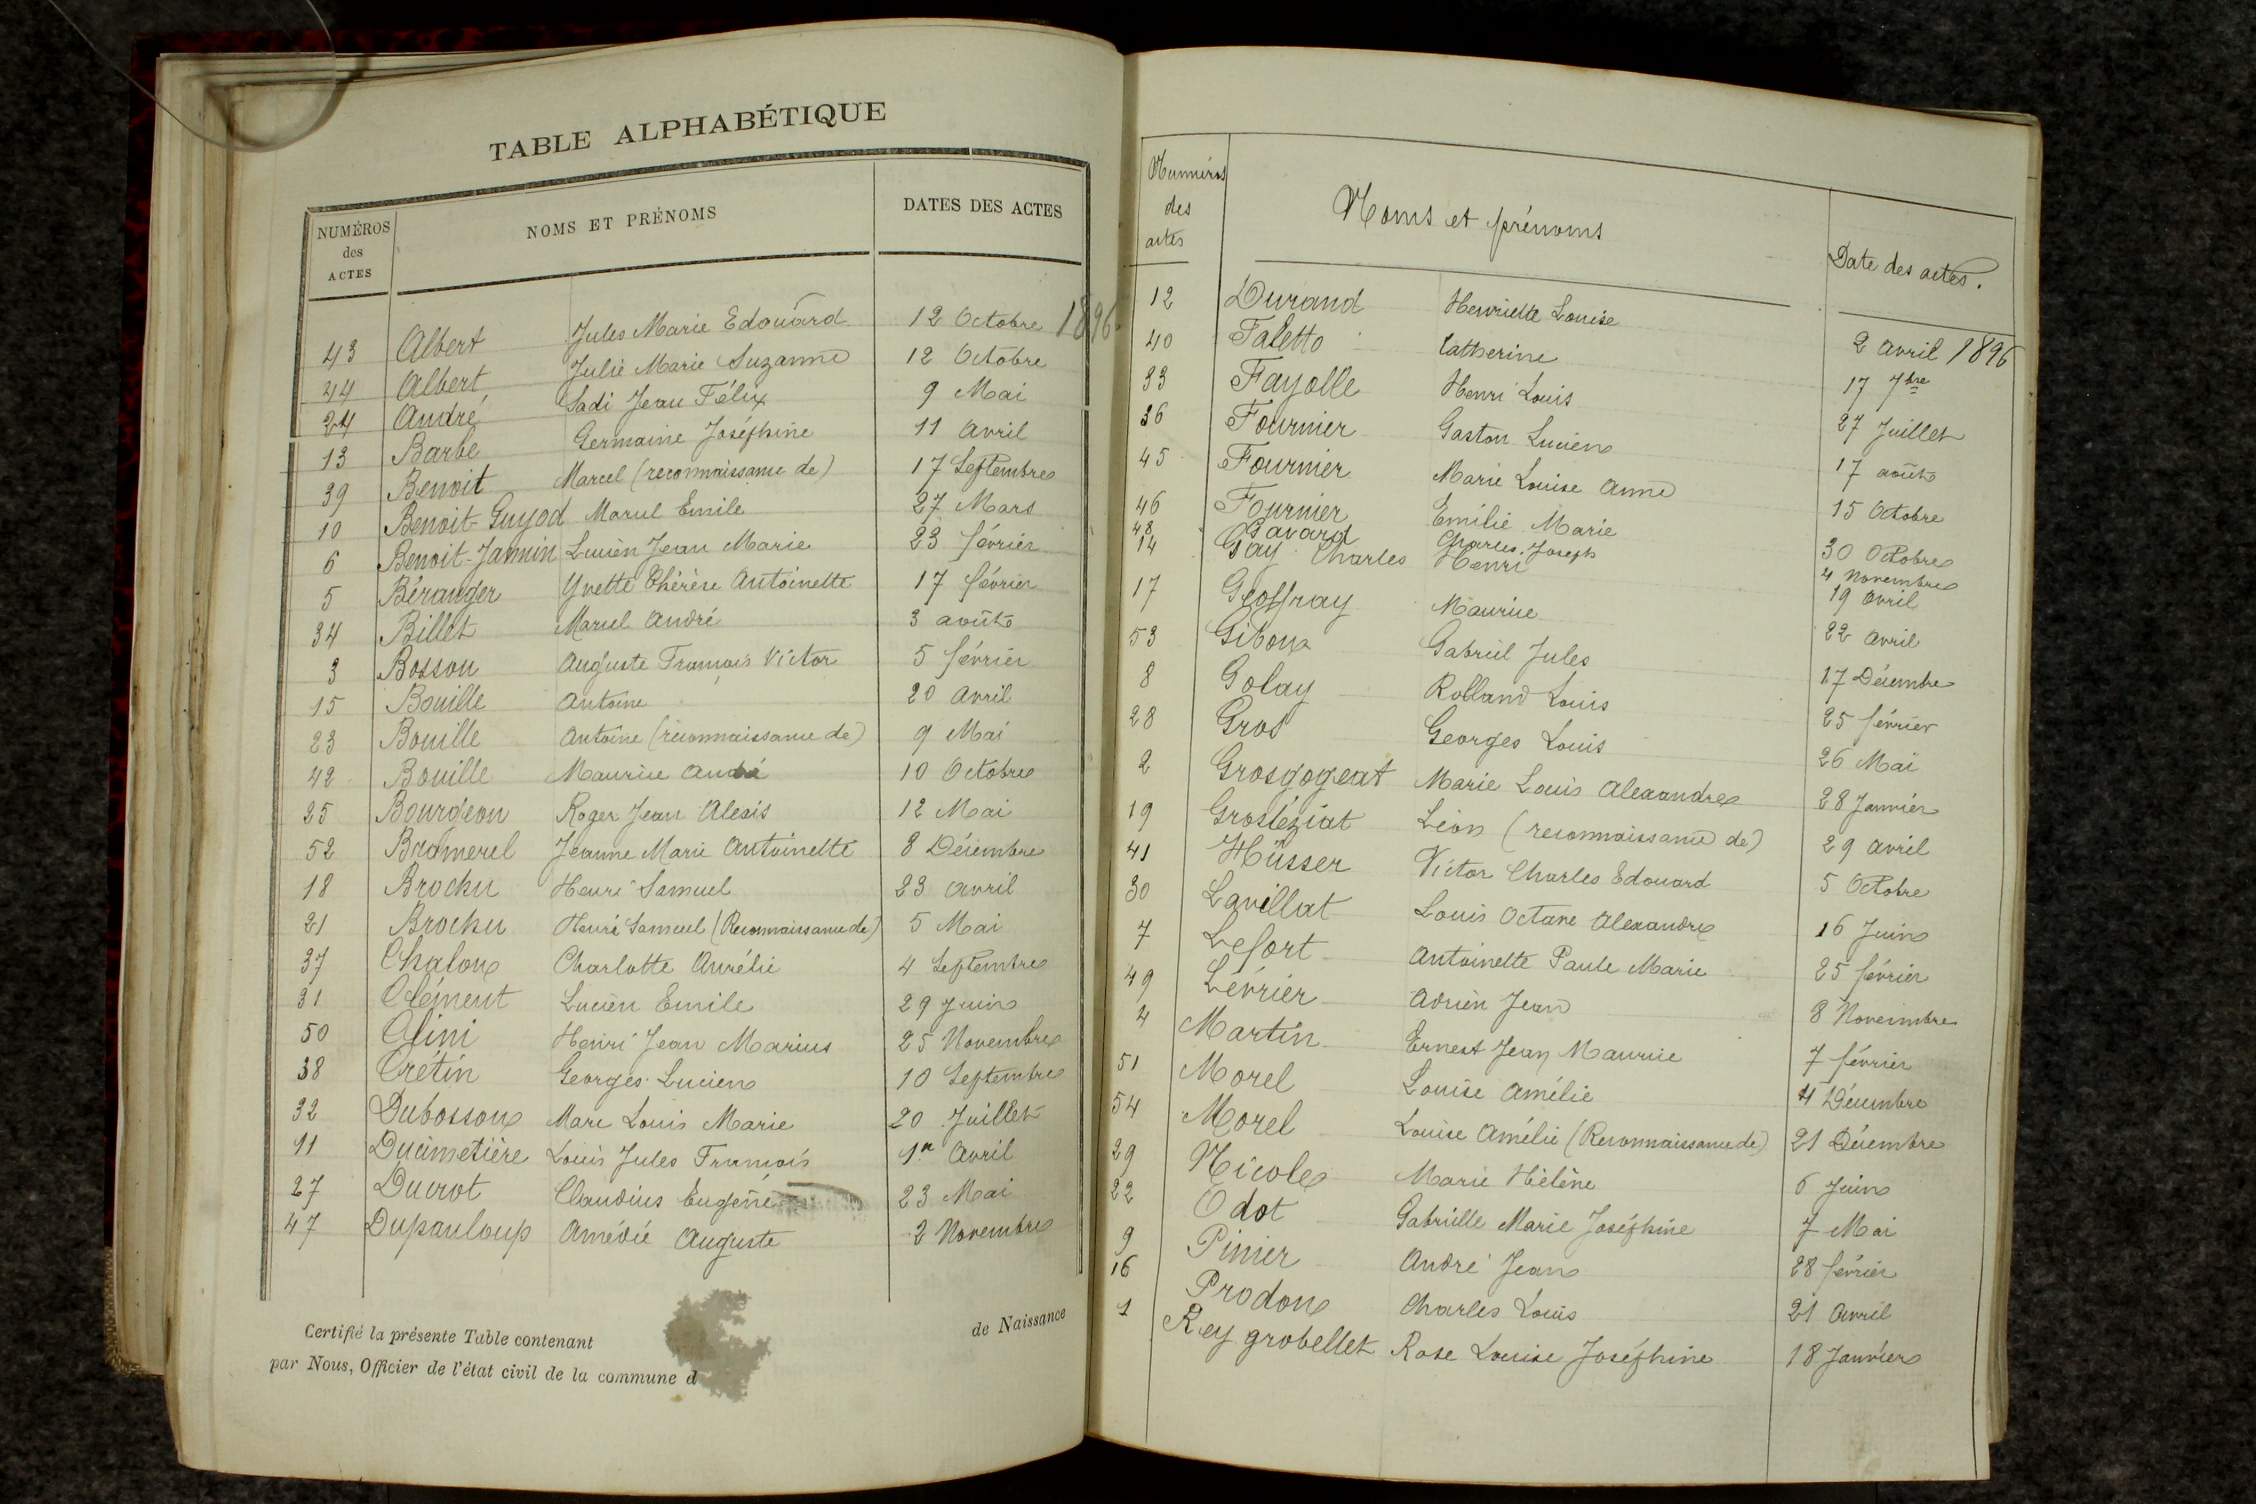 TABLE ALPHABÉTIQUE
NUMÉROS des ACTES
NOMS ET PRÉNOMS
DATES DES ACTES
43 Albert Jules Marie Edouard 12 Octobre 1896
44 Albert Julie Marie Suzanne 12 Octobre
24 André Sadi Jean Félix 9 Mai
13 Barbe Germaine Joséphine 11 Avril
39 Benoit Marcel (reconnaissance de) 17 Septembre
10 Benoit-Guyod Marcel Emile 27 Mars
6 Benoit-Jannin Lucien Jean Marie 23 février
5 Béranger Yvette Thérèse Antoinette 17 février
34 Billet Marcel André 3 août
3 Bosson Auguste François Victor 5 février
15 Bouille Antoine 20 Avril
23 Bouille Antoine (reconnaissance de) 9 Mai
42 Bouille Maurice André 10 Octobre
25 Bourgeon Roger Jean Alexis 12 Mai
52 Bramerel Jeanne Marie Antoinette 8 Décembre
18 Brocku Henri Samuel 23 avril
21 Brocku Henri Samuel (Reconnaissance de) 5 Mai
37 Chalon Charlotte Aurélie 4 Septembre
31 Clément Lucien Emile 29 Juin
50 Clini Henri Jean Marius 25 Novembre
38 Crétin Georges Lucien 10 Septembre
32 Dubosson Marc Louis Marie 20 Juillet
11 Ducimetière Louis Jules François 1er Avril
27 Ducrot Claudius Eugène 23 Mai
47 Dupauloup Amédée Auguste 2 Novembre
Certifié la présente Table contenant de Naissance
par Nous, Officier de l'état civil de la commune d
Numéros des actes
Noms et prénoms
Date des actes.
12 Durand Henriette Louise 2 avril 1896
40 Faletto Catherine 17 7bre
33 Fayolle Henri Louis 27 Juillet
36 Fournier Gaston Lucien 17 août
45 Fournier Marie Louise Anne 15 Octobre
46 Fournier Emilie Marie 30 Octobre
48 Gavard Charles Joseph 4 Novembre
14 Gay Charles Henri 19 Avril
17 Geoffray Maurice 22 avril
53 Giboux Gabriel Jules 17 Décembre
8 Golay Rolland Louis 25 février
28 Gros Georges Louis 26 Mai
2 Grosgogeat Marie Louis Alexandre 28 Janvier
19 Grosléziat Léon (reconnaissance de) 29 avril
41 Hüsser Victor Charles Edouard 5 Octobre
30 Lavillat Louis Octave Alexandre 16 Juin
7 Lefort Antoinette Paule Marie 25 février
49 Lévrier Adrien Jean 8 Novembre
4 Martin Ernest Jean Maurice 7 février
51 Morel Louise Amélie 4 Décembre
54 Morel Louise Amélie (Reconnaissance de) 21 Décembre
29 Nicole Marie Hélène 6 Juin
22 Odot Gabrielle Marie Joséphine 7 Mai
9 Pinier André Jean 28 février
16 Prodon Charles Louis 21 Avril
1 Rey grobellet Rose Louise Joséphine 18 Janvier